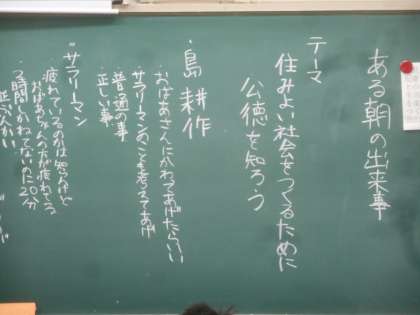 ある朝の出来事
テーマ
住みよい社会をつくるために
公徳を知ろう
・島耕作
・おばあさんにかわってあげたらいい
・サラリーマンのことも考えてあげ
・普通の事
・正しい事
・サラリーマン
・疲れているのかは知らんけど
おばあちゃんの方が疲れてる